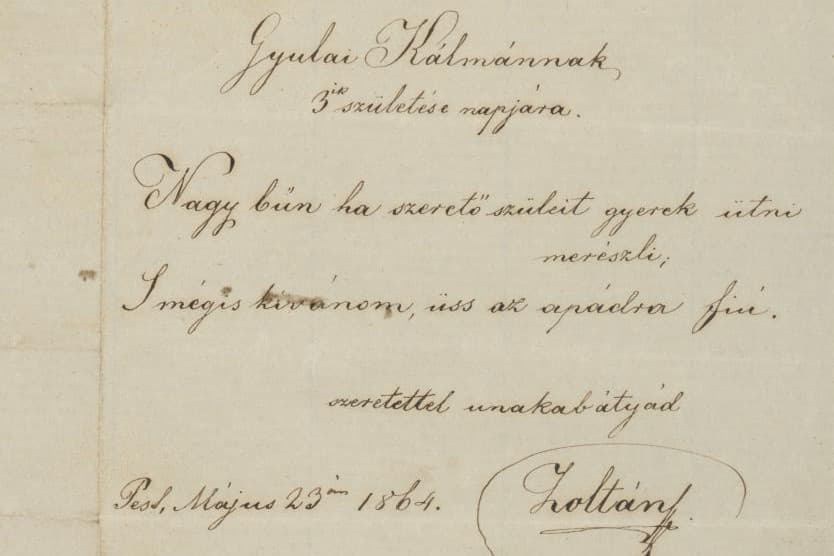 Gyulai Kálmánnak
3ik születése napjára.
Nagy bűn ha szerető szüleit gyerek ütni
merészli;
S mégis kívánom, üss az apádra fiú.
szeretettel unakabátyád
Pest, Május 23án 1864.
Zoltán